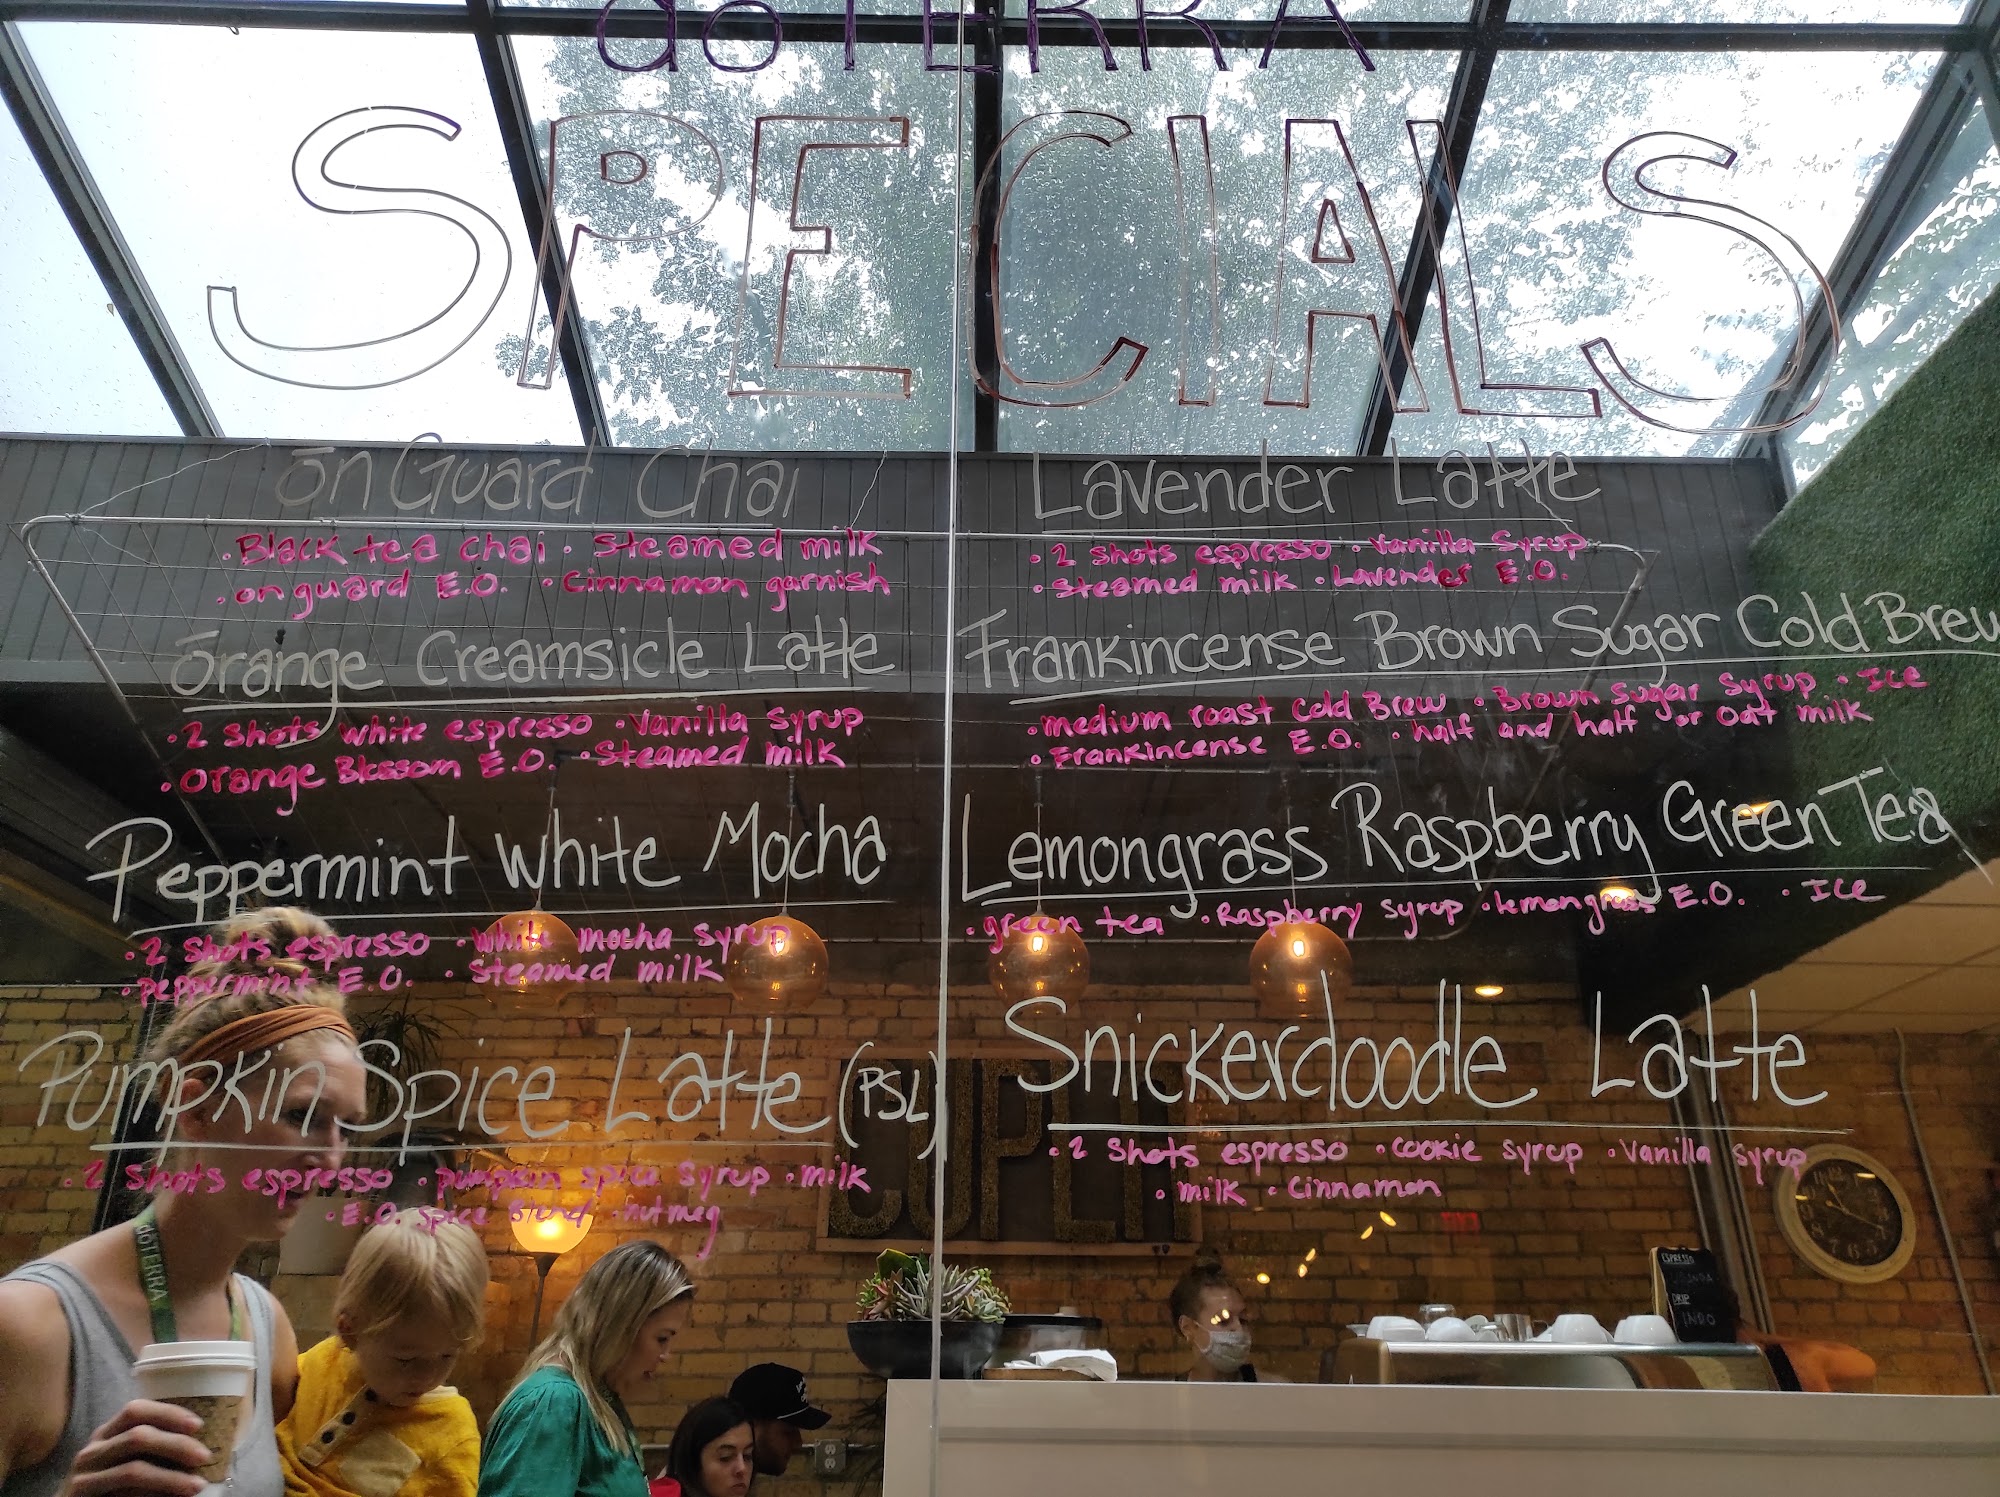 dōTERRA
SPECIALS
ōn Guard Chai
• Black tea chai • Steamed milk
• on guard E.O. • Cinnamon garnish
ōrange Creamsicle Latte
• 2 shots white espresso • Vanilla Syrup
• Orange Blossom E.O. • Steamed milk
Peppermint White Mocha
• 2 shots espresso • white mocha syrup
• peppermint E.O. • steamed milk
Pumpkin Spice Latte (PSL)
• 2 shots espresso • pumpkin spice syrup • milk
• E.O. spice Blend • nutmeg
Lavender Latte
• 2 shots espresso • Vanilla Syrup
• steamed milk • Lavender E.O.
Frankincense Brown Sugar Cold Brew
• medium roast Cold Brew • Brown Sugar Syrup • Ice
• Frankincense E.O. • half and half or oat milk
Lemongrass Raspberry Green Tea
• green tea • Raspberry syrup • lemongrass E.O. • Ice
Snickerdoodle Latte
• 2 shots espresso • cookie syrup • Vanilla syrup
• milk • Cinnamon
dōTERRA
ESPRESSO
DRIP
INDO